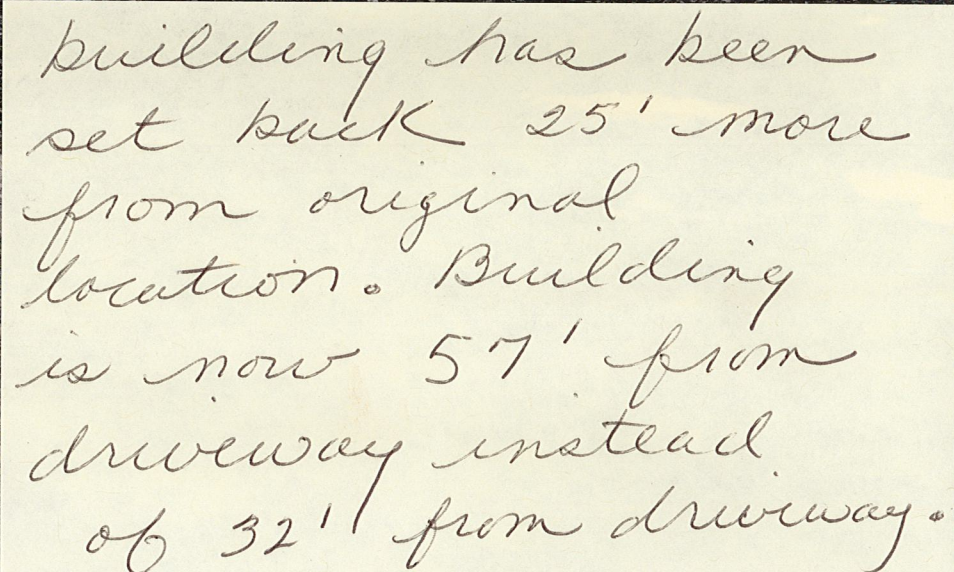 building has been
set back 25' more
from original
location. Building
is now 57' from
driveway instead
of 32' from driveway.